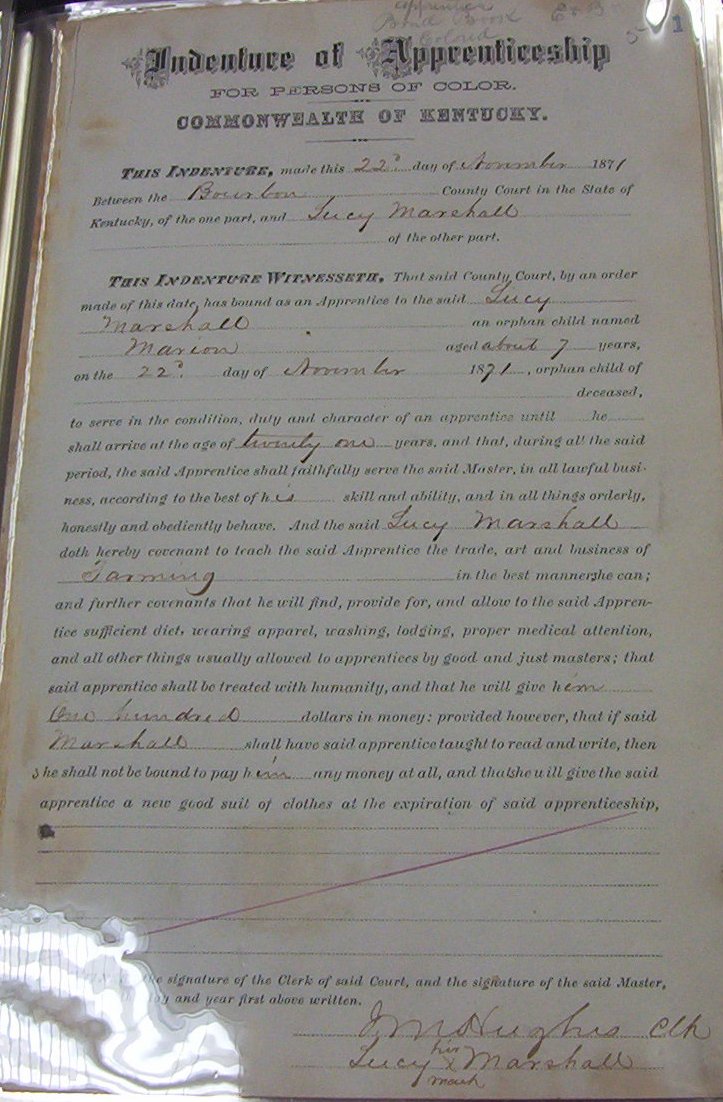 Apprentice
Bond Book
Colored
5 1
Indenture of Apprenticeship
FOR PERSONS OF COLOR.
COMMONWEALTH OF KENTUCKY.
THIS INDENTURE, made this 22d day of November 1871
Between the Bourbon County Court in the State of
Kentucky, of the one part, and Lucy Marshall
of the other part.
THIS INDENTURE WITNESSETH, That said County Court, by an order
made of this date, has bound as an Apprentice to the said Lucy
Marshall an orphan child named
Marion aged about 7 years,
on the 22d day of November 1871, orphan child of
deceased,
to serve in the condition, duty and character of an apprentice until he
shall arrive at the age of twenty one years, and that, during all the said
period, the said Apprentice shall faithfully serve the said Master, in all lawful busi-
ness, according to the best of his skill and ability, and in all things orderly,
honestly and obediently behave. And the said Lucy Marshall
doth hereby covenant to teach the said Apprentice the trade, art and business of
Farming in the best manner she can;
and further covenants that he will find, provide for, and allow to the said Appren-
tice sufficient diet, wearing apparel, washing, lodging, proper medical attention,
and all other things usually allowed to apprentices by good and just masters; that
said apprentice shall be treated with humanity, and that he will give him
One hundred dollars in money: provided however, that if said
Marshall shall have said apprentice taught to read and write, then
she shall not be bound to pay him any money at all, and that she will give the said
apprentice a new good suit of clothes at the expiration of said apprenticeship,
the signature of the Clerk of said Court, and the signature of the said Master,
and year first above written.
Hughes Clk
Lucy her x mark Marshall